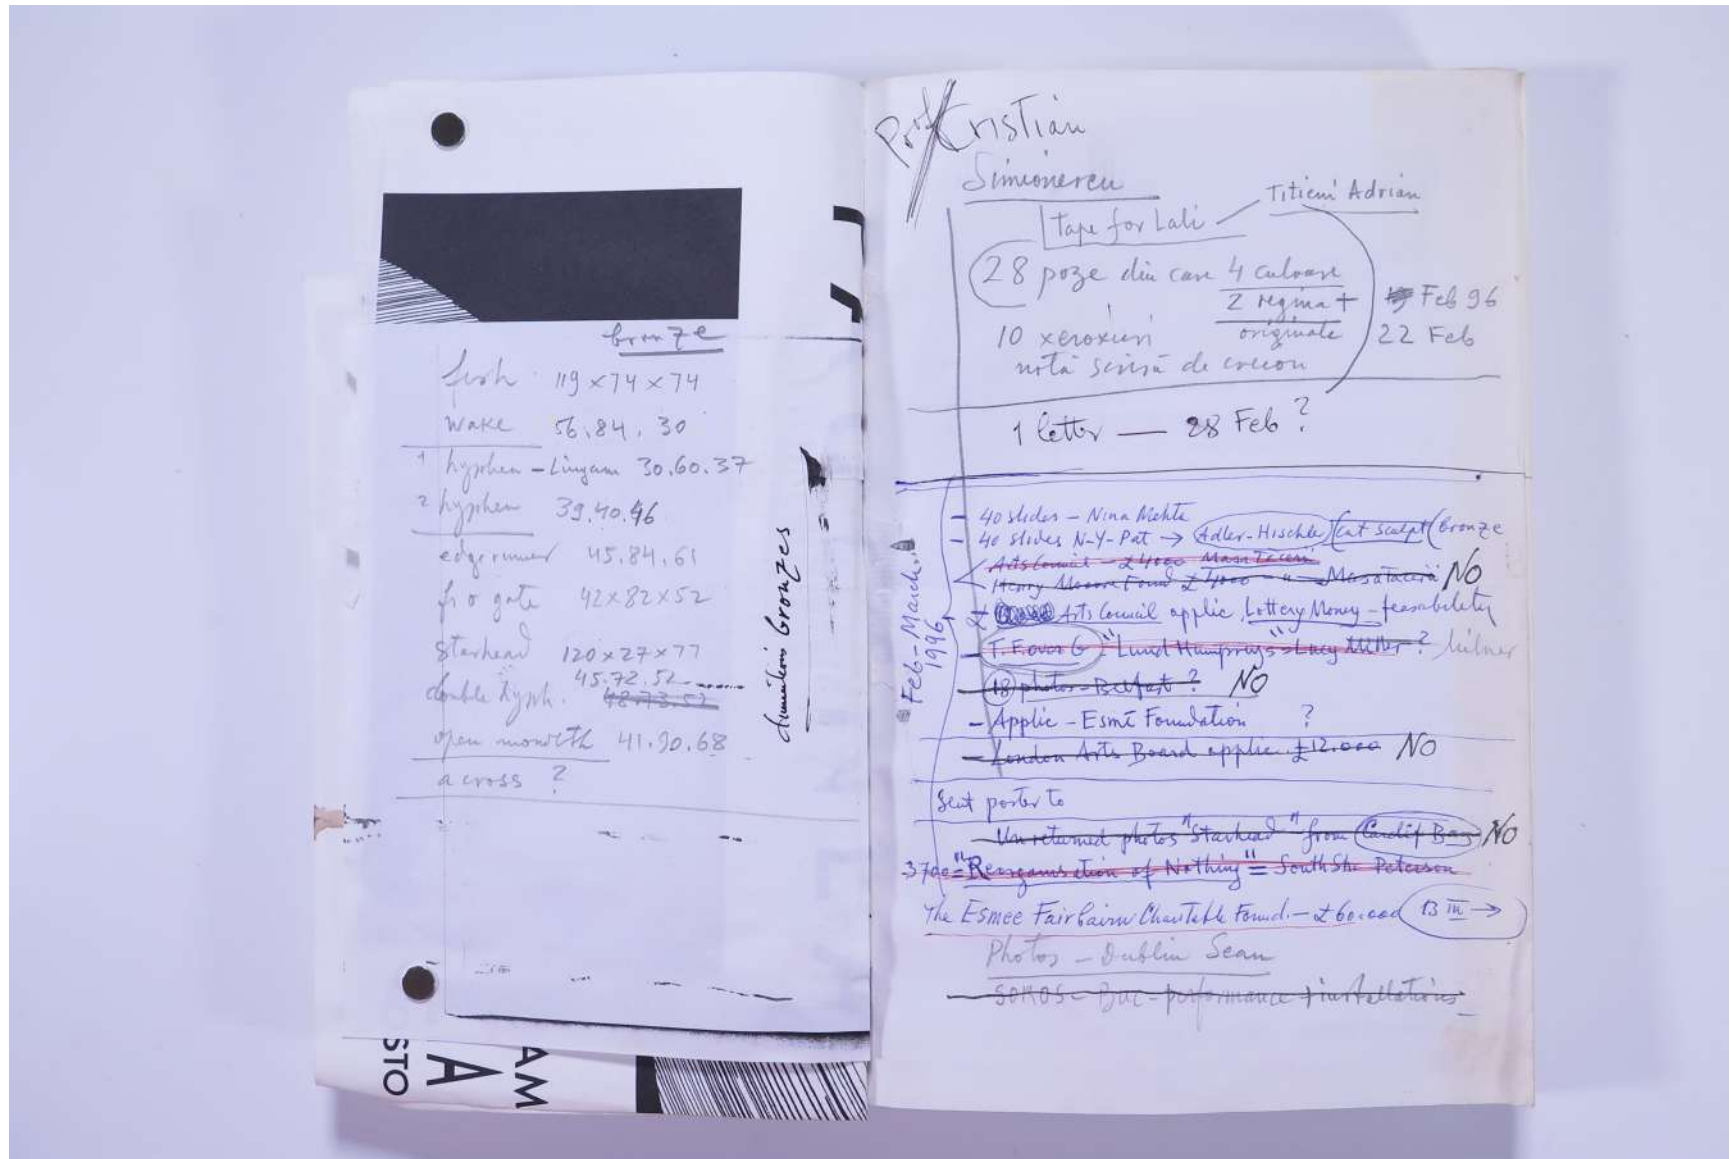 bronze
fish 119 x 74 x 74
wake 56.84.30
1 hyphen - Lingam 30.60.37
2 hyphen 39.40.46
edgerunner 45.84.61
fro gate 42x82x52
Starhead 120x27x77
45.72.52
double hyph. 48.73.52
open mouth 41.90.68
across ?
dimensions bronzes
STO
A
AM
Prof Cristian
Simionescu
Titieni Adrian
Tape for Lali
28 poze din care 4 culoare
2 regina +
originale
Feb 96
22 Feb
10 xeroxuri
notă scrisă de creion
1 letter — 28 Feb ?
Feb-March.
1996
- 40 slides - Nina Mehta
- 40 slides N-Y-Pat → Adler-Hischle (Cat Sculpt (Bronze
Arts Council - £4000 Masa Tacerii
Henry Moore Found £4000 - " - Masa Tacerii NO
£ Arts Council applic, Lottery Money - feasability
- T.F. over G "Lund Humphreys" - Lucy Miller ? Milner
- 18 photos - Belfast ? NO
- Applic - Esmé Foundation ?
- London Arts Board applic £12.000 NO
Sent poster to
Unreturned photos "Starhead" from Cardif Bay NO
3700 = "Reorganisation of Nothing" = South Peterson
The Esmee Fairbairn Charitable Found. - £60.000 13 III →
Photos - Dublin Sean
SOROS - Buc - performance + installations